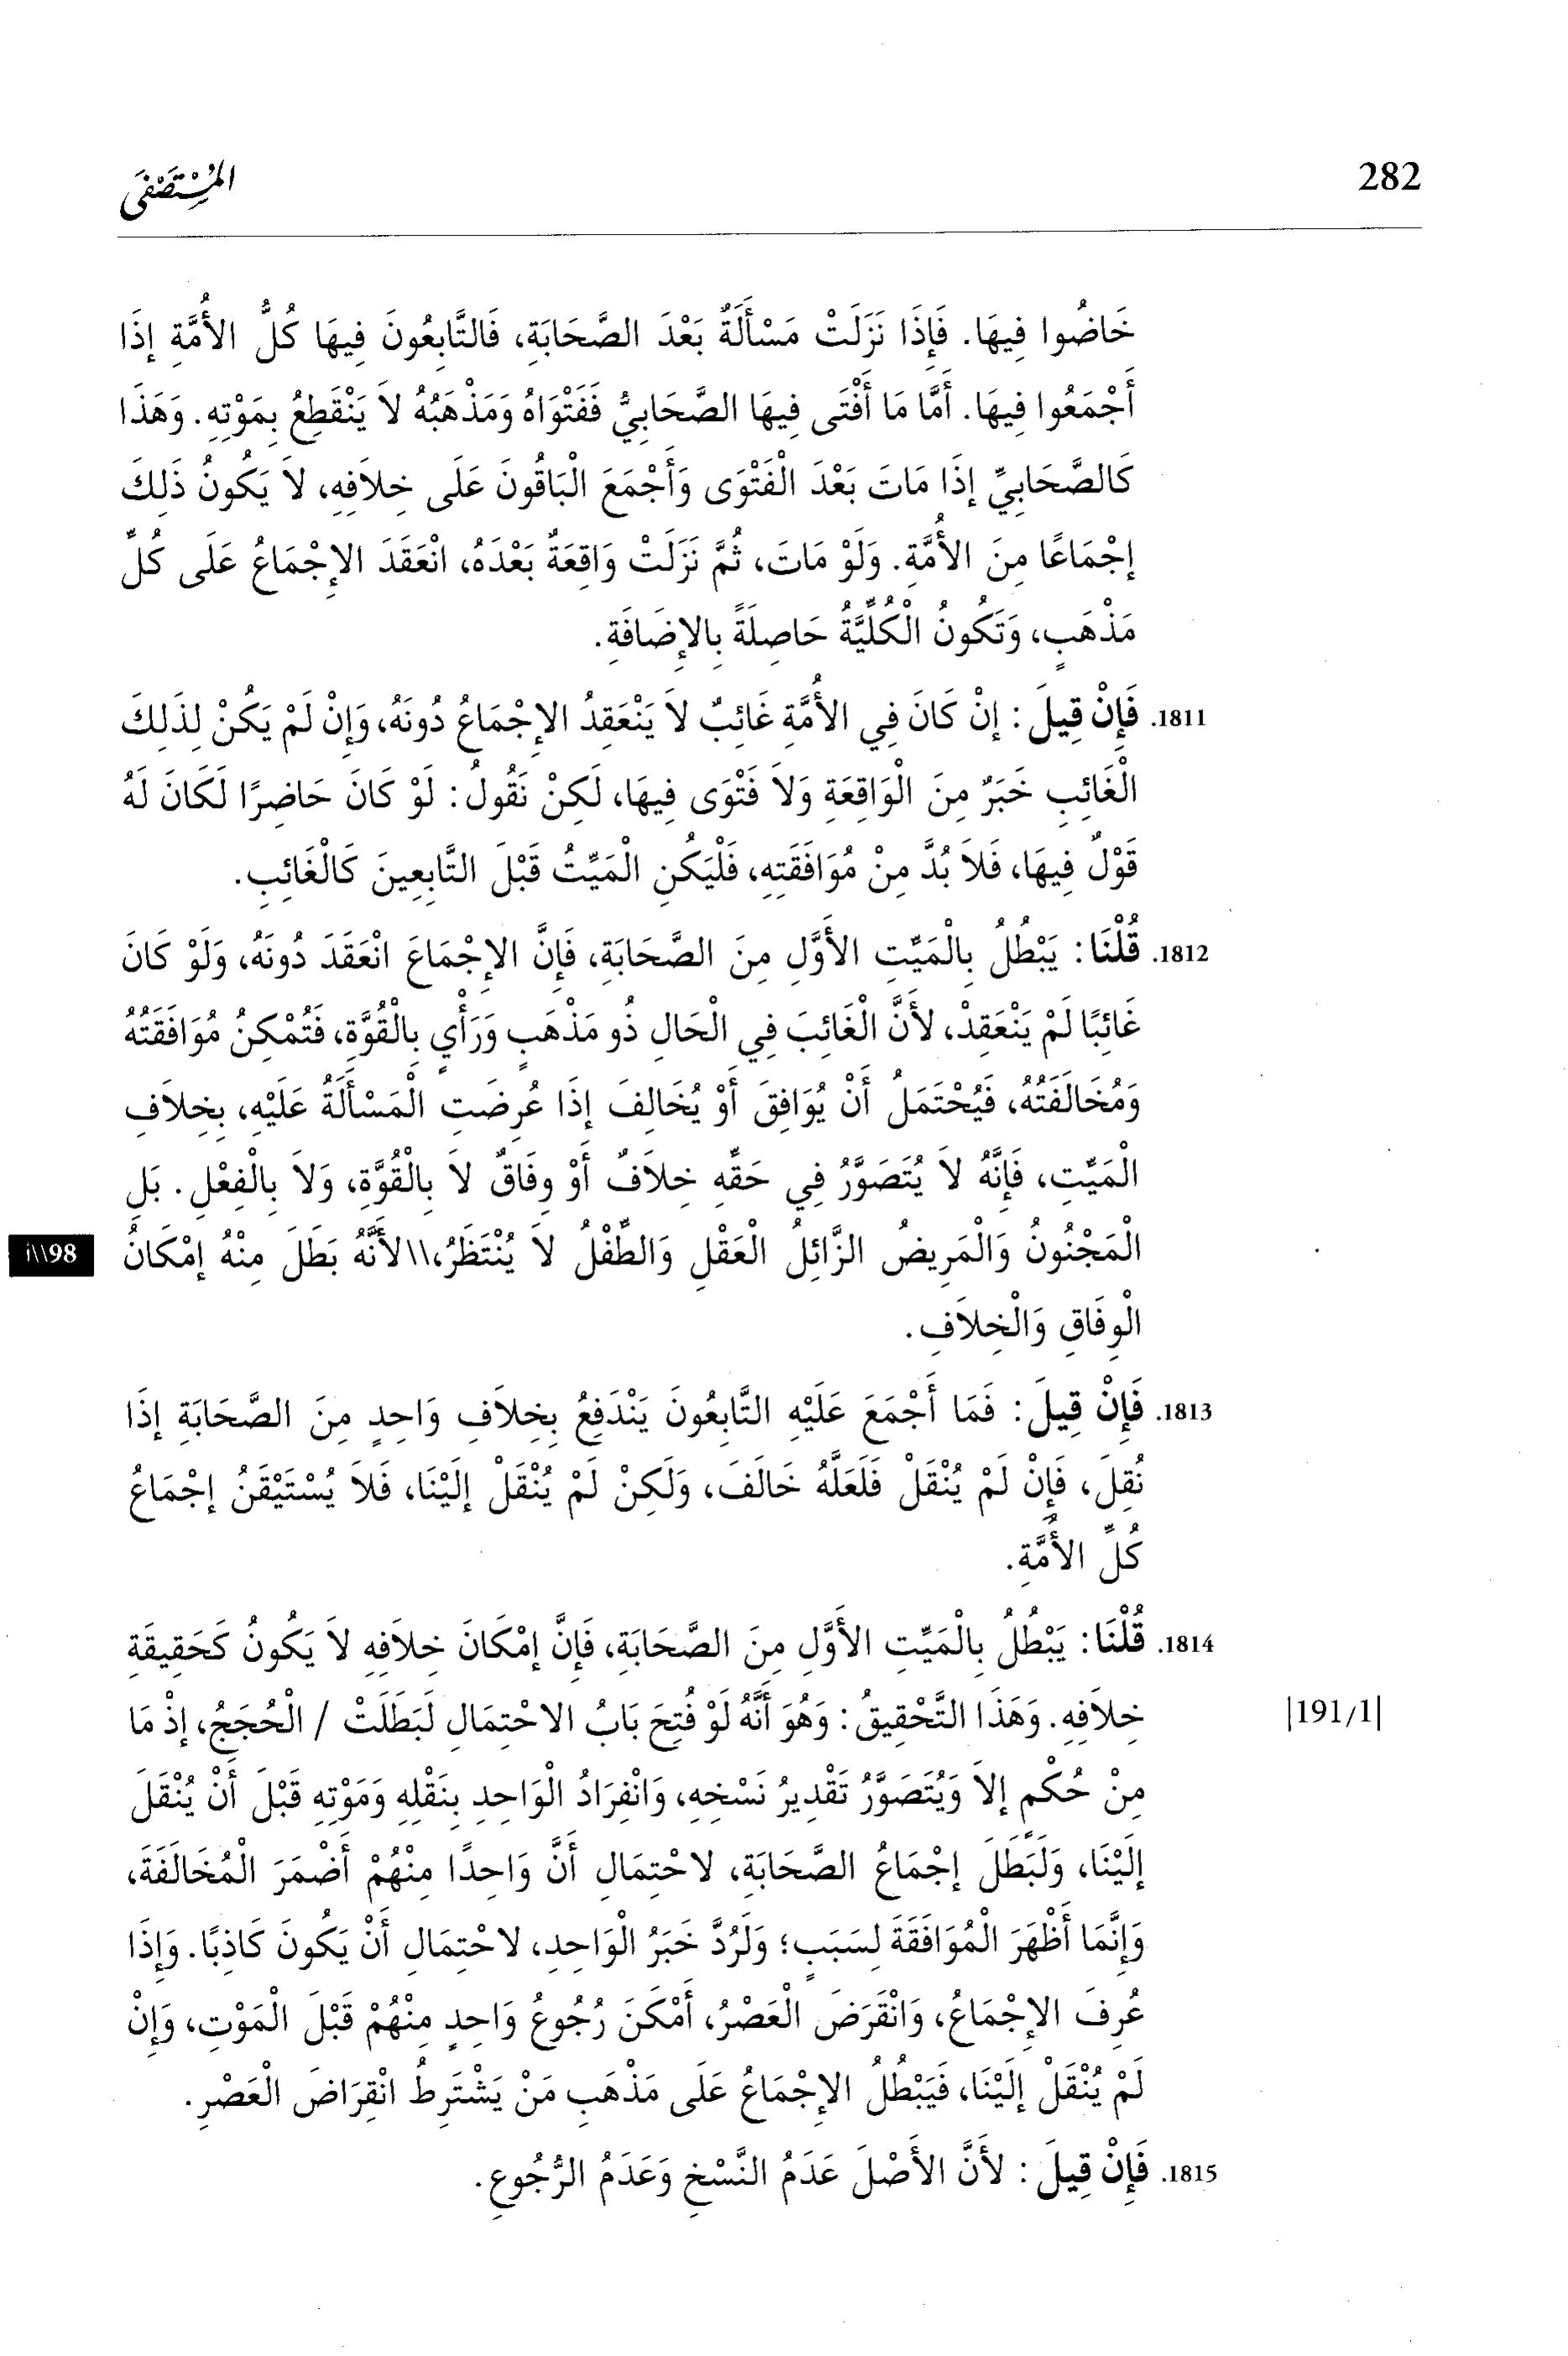 282
المُسْتَصْفَى
خَاضُوا فِيهَا. فَإِذَا نَزَلَتْ مَسْأَلَةٌ بَعْدَ الصَّحَابَةِ، فَالتَّابِعُونَ فِيهَا كُلُّ الأُمَّةِ إِذَا
أَجْمَعُوا فِيهَا. أَمَّا مَا أَفْتَى فِيهَا الصَّحَابِيُّ فَفَتْوَاهُ وَمَذْهَبُهُ لاَ يَنْقَطِعُ بِمَوْتِهِ. وَهَذَا
كَالصَّحَابِيِّ إِذَا مَاتَ بَعْدَ الْفَتْوَى وَأَجْمَعَ الْبَاقُونَ عَلَى خِلاَفِهِ، لاَ يَكُونُ ذَلِكَ
إِجْمَاعًا مِنَ الأُمَّةِ. وَلَوْ مَاتَ، ثُمَّ نَزَلَتْ وَاقِعَةٌ بَعْدَهُ، انْعَقَدَ الإِجْمَاعُ عَلَى كُلِّ
مَذْهَبٍ، وَتَكُونُ الْكُلِّيَّةُ حَاصِلَةً بِالإِضَافَةِ.
1811. فَإِنْ قِيلَ: إِنْ كَانَ فِي الأُمَّةِ غَائِبٌ لاَ يَنْعَقِدُ الإِجْمَاعُ دُونَهُ، وَإِنْ لَمْ يَكُنْ لِذَلِكَ
الْغَائِبِ خَبَرٌ مِنَ الْوَاقِعَةِ وَلاَ فَتْوَى فِيهَا، لَكِنْ نَقُولُ: لَوْ كَانَ حَاضِرًا لَكَانَ لَهُ
قَوْلٌ فِيهَا، فَلاَ بُدَّ مِنْ مُوَافَقَتِهِ، فَلْيَكُنِ الْمَيِّتُ قَبْلَ التَّابِعِينَ كَالْغَائِبِ.
1812. قُلْنَا: يَبْطُلُ بِالْمَيِّتِ الأَوَّلِ مِنَ الصَّحَابَةِ، فَإِنَّ الإِجْمَاعَ انْعَقَدَ دُونَهُ، وَلَوْ كَانَ
غَائِبًا لَمْ يَنْعَقِدْ، لأَنَّ الْغَائِبَ فِي الْحَالِ ذُو مَذْهَبٍ وَرَأْيٍ بِالْقُوَّةِ، فَتُمْكِنُ مُوَافَقَتُهُ
وَمُخَالَفَتُهُ، فَيُحْتَمَلُ أَنْ يُوَافِقَ أَوْ يُخَالِفَ إِذَا عُرِضَتِ الْمَسْأَلَةُ عَلَيْهِ، بِخِلاَفِ
الْمَيِّتِ، فَإِنَّهُ لاَ يُتَصَوَّرُ فِي حَقِّهِ خِلاَفٌ أَوْ وِفَاقٌ لاَ بِالْقُوَّةِ، وَلاَ بِالْفِعْلِ. بَلِ
الْمَجْنُونُ وَالْمَرِيضُ الزَّائِلُ الْعَقْلِ وَالطِّفْلُ لاَ يُنْتَظَرُ،\\لأَنَّهُ بَطَلَ مِنْهُ إِمْكَانُ
أ\\98
الْوِفَاقِ وَالْخِلاَفِ.
1813. فَإِنْ قِيلَ: فَمَا أَجْمَعَ عَلَيْهِ التَّابِعُونَ يَنْدَفِعُ بِخِلاَفِ وَاحِدٍ مِنَ الصَّحَابَةِ إِذَا
نُقِلَ، فَإِنْ لَمْ يُنْقَلْ فَلَعَلَّهُ خَالَفَ، وَلَكِنْ لَمْ يُنْقَلْ إِلَيْنَا، فَلاَ يُسْتَيْقَنُ إِجْمَاعُ
كُلِّ الأُمَّةِ.
1814. قُلْنَا: يَبْطُلُ بِالْمَيِّتِ الأَوَّلِ مِنَ الصَّحَابَةِ، فَإِنَّ إِمْكَانَ خِلاَفِهِ لاَ يَكُونُ كَحَقِيقَةِ
خِلاَفِهِ. وَهَذَا التَّحْقِيقُ: وَهُوَ أَنَّهُ لَوْ فُتِحَ بَابُ الاحْتِمَالِ لَبَطَلَتْ / الْحُجَجُ، إِذْ مَا
|191/1|
مِنْ حُكْمٍ إِلاَّ وَيُتَصَوَّرُ تَقْدِيرُ نَسْخِهِ، وَانْفِرَادُ الْوَاحِدِ بِنَقْلِهِ وَمَوْتِهِ قَبْلَ أَنْ يُنْقَلَ
إِلَيْنَا، وَلَبَطَلَ إِجْمَاعُ الصَّحَابَةِ، لاحْتِمَالِ أَنَّ وَاحِدًا مِنْهُمْ أَضْمَرَ الْمُخَالَفَةَ،
وَإِنَّمَا أَظْهَرَ الْمُوَافَقَةَ لِسَبَبٍ؛ وَلَرُدَّ خَبَرُ الْوَاحِدِ، لاحْتِمَالِ أَنْ يَكُونَ كَاذِبًا. وَإِذَا
عُرِفَ الإِجْمَاعُ، وَانْقَرَضَ الْعَصْرُ، أَمْكَنَ رُجُوعُ وَاحِدٍ مِنْهُمْ قَبْلَ الْمَوْتِ، وَإِنْ
لَمْ يُنْقَلْ إِلَيْنَا، فَيَبْطُلُ الإِجْمَاعُ عَلَى مَذْهَبِ مَنْ يَشْتَرِطُ انْقِرَاضَ الْعَصْرِ.
1815. فَإِنْ قِيلَ: لأَنَّ الأَصْلَ عَدَمُ النَّسْخِ وَعَدَمُ الرُّجُوعِ.